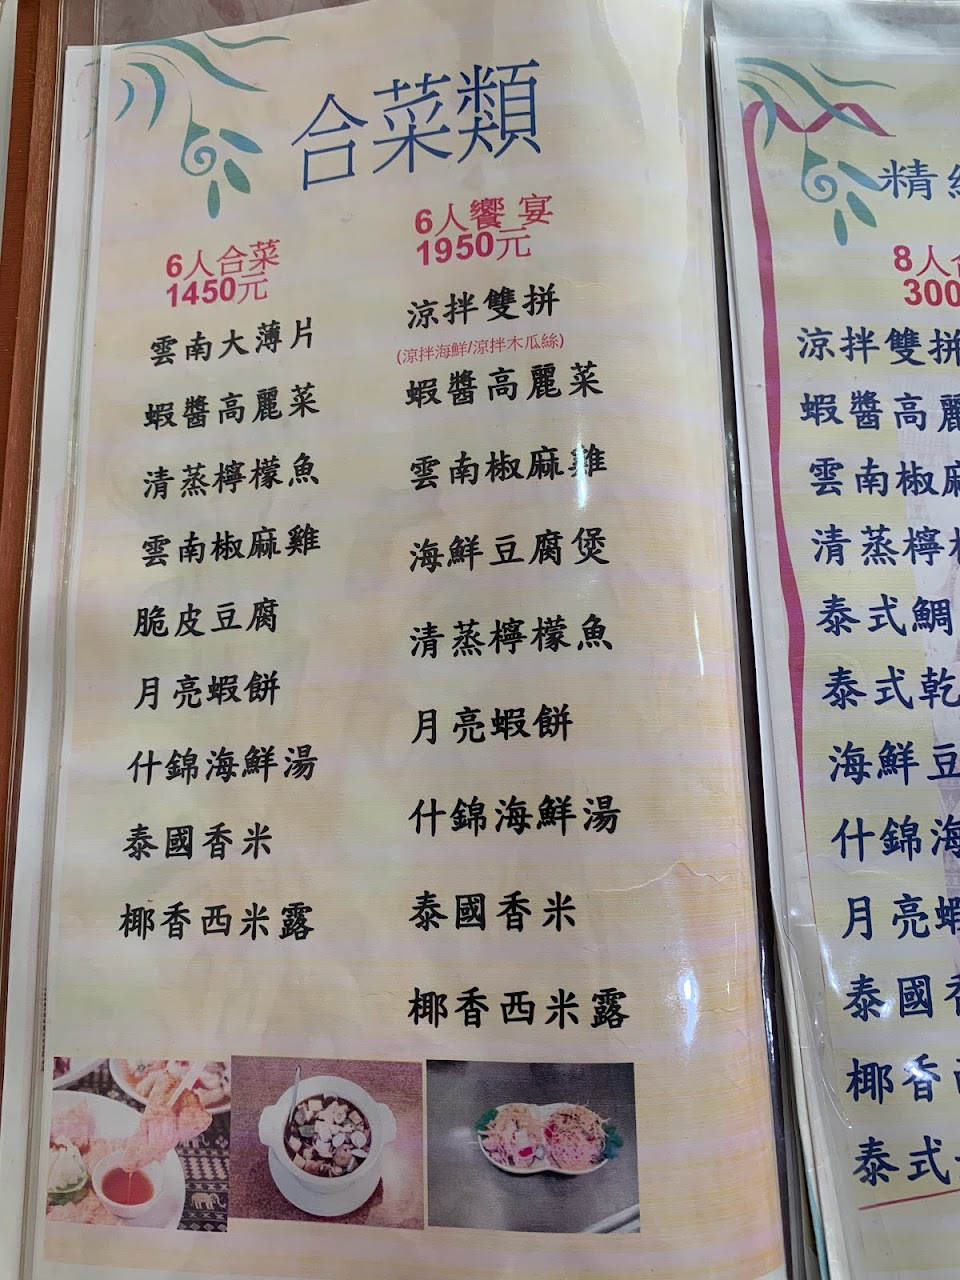 合菜類
6人合菜
1450元
雲南大薄片
蝦醬高麗菜
清蒸檸檬魚
雲南椒麻雞
脆皮豆腐
月亮蝦餅
什錦海鮮湯
泰國香米
椰香西米露
6人饗宴
1950元
涼拌雙拼
(涼拌海鮮/涼拌木瓜絲)
蝦醬高麗菜
雲南椒麻雞
海鮮豆腐煲
清蒸檸檬魚
月亮蝦餅
什錦海鮮湯
泰國香米
椰香西米露
精
8人
300
涼拌雙拼
蝦醬高麗
雲南椒麻
清蒸檸
泰式鯛
泰式乾
海鮮豆
什錦海
月亮蝦
泰國香
椰香西
泰式